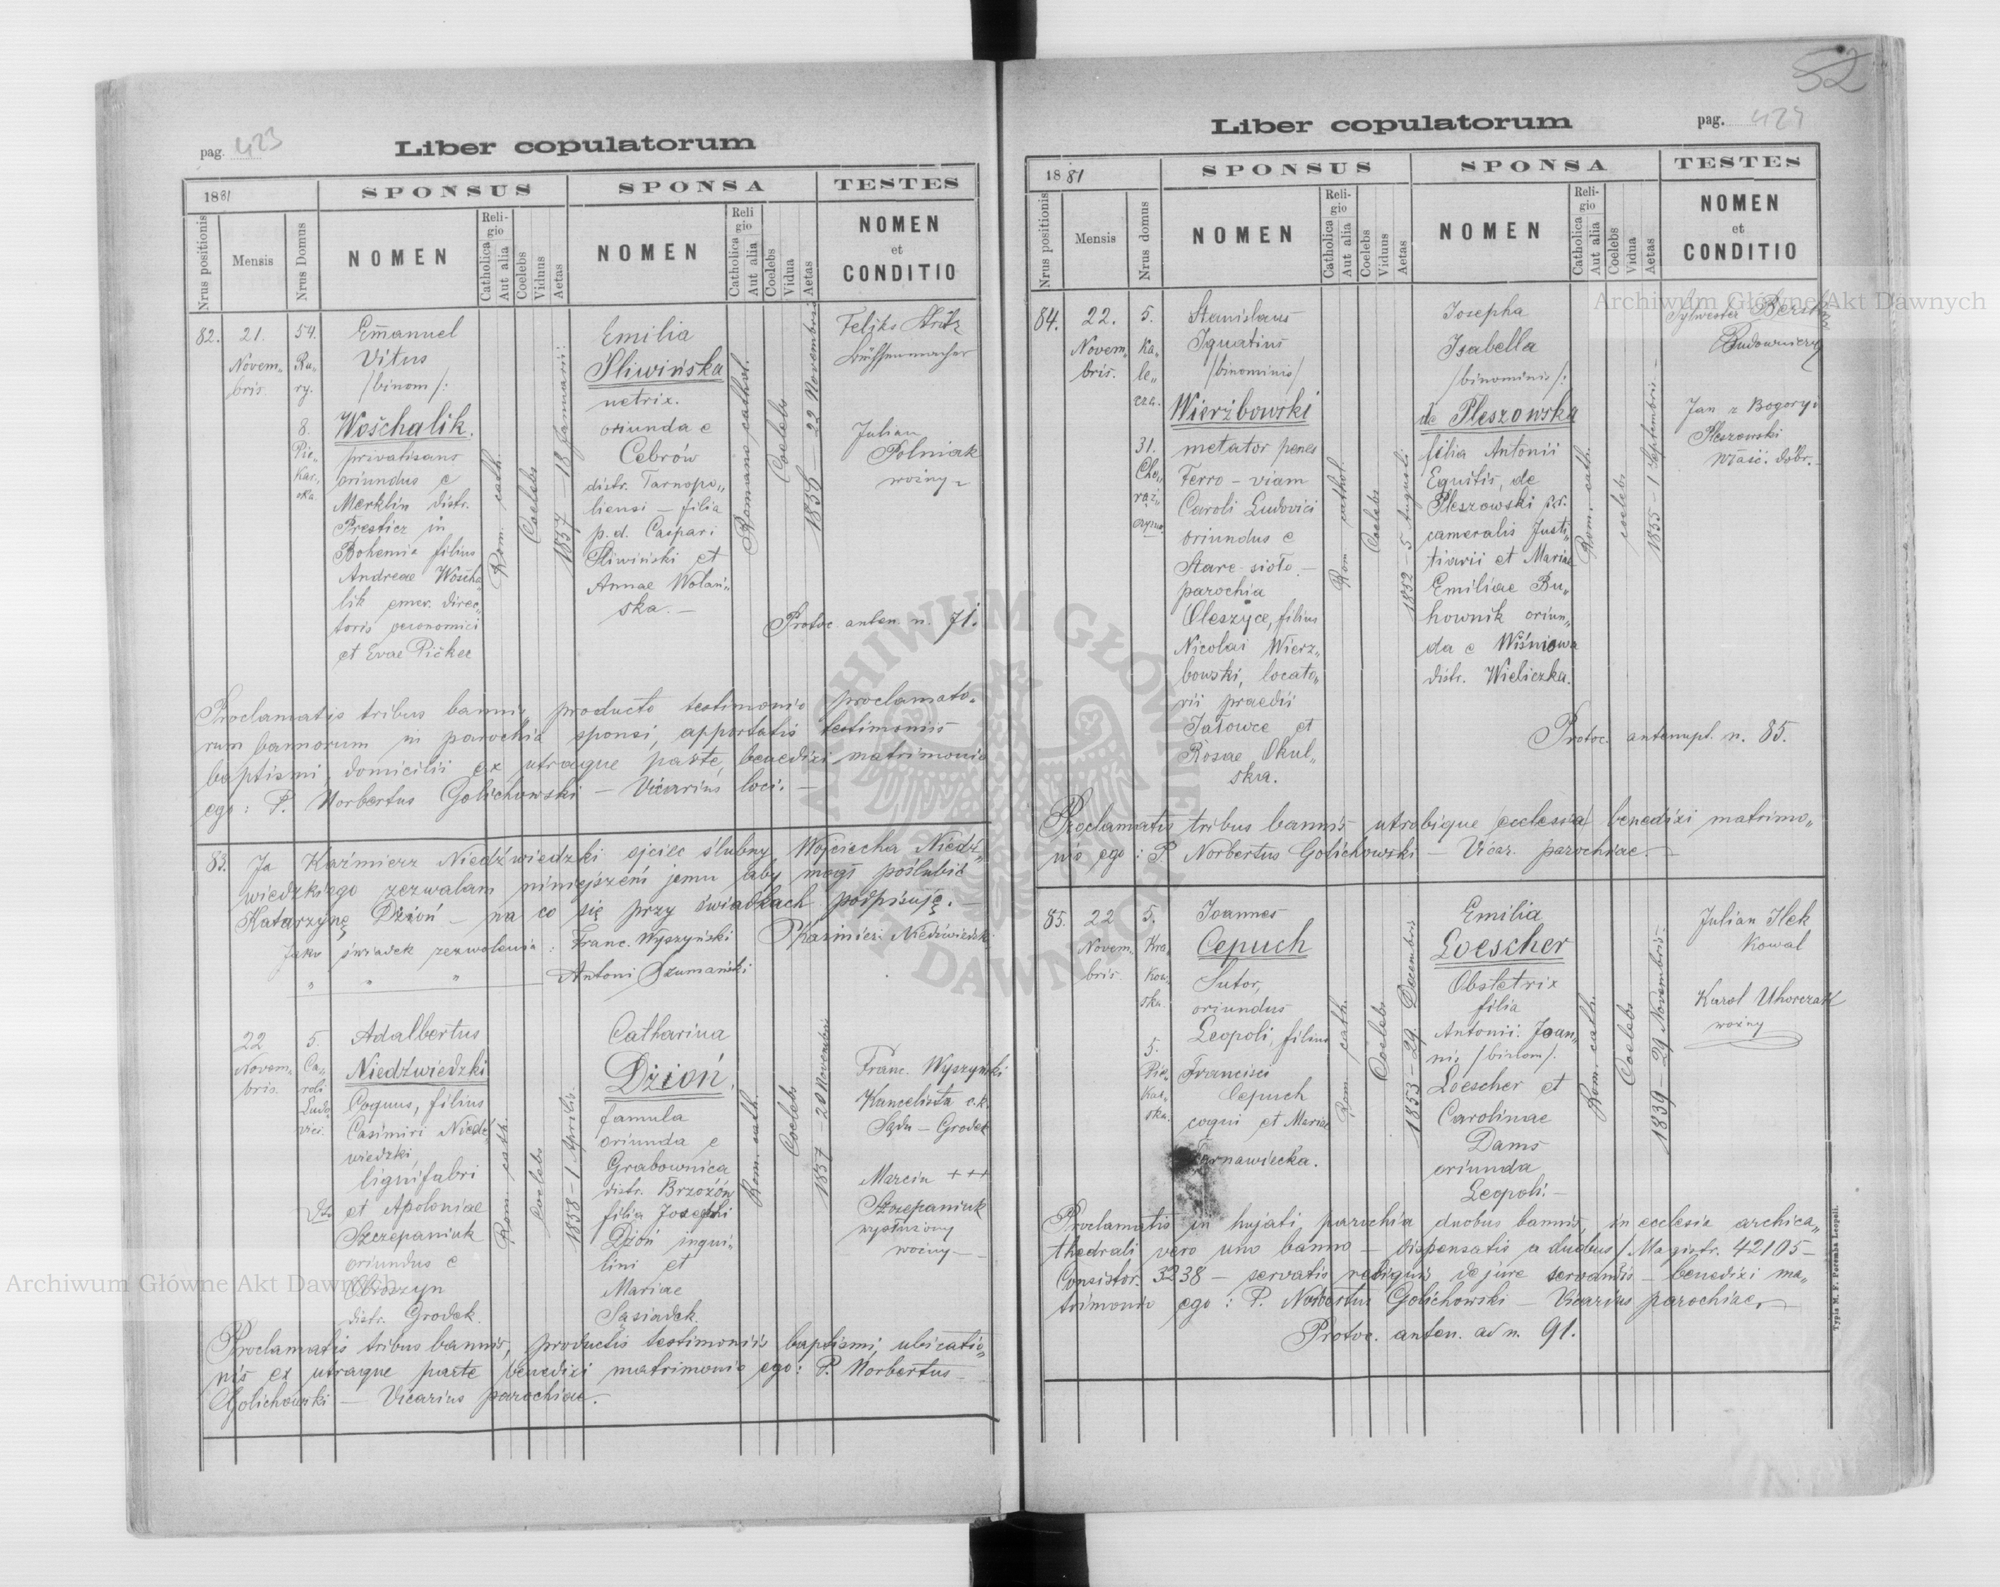 52
pag. 423
Liber copulatorum
1881
SPONSUS
SPONSA
TESTES
Nrus positionis
Mensis
Nrus Domus
NOMEN
Religio
Catholica
Aut alia
Coelebs
Viduus
Aetas
NOMEN
Religio
Catholica
Aut alia
Coelebs
Vidua
Aetas
NOMEN
et
CONDITIO
82.
21.
Novem„
bris.
54.
Ru„
ry.
8.
Pie„
kar„
ska
Emanuel
Vitus
/binom/:
Woschalik.
privatisans
oriundus e
Merklin distr.
Presticz in
Bohemia filius
Andreae Woscha
lik emer. direc„
toris oeconomici
et Evae Pickee
Rom. cath.
Coelebs
1857 – 18 Januarii.
Emilia
Sliwińska
netrix.
oriunda e
Cebrów
distr. Tarnopo„
liensi – filia
p.d. Caspari
Sliwiński et
Annae Wolań„
ska. –
Romano cathol.
Coelebs
1856 – 22 Novembris.
Feliks
Büchsenmacher
Julian
Polniak
woźny
Protoc. anten. n. 71.
Proclamatis tribus bannis, producto testimonio proclamato„
rum bannorum in parochia sponsi, apportatis testimoniis
baptismi, domicilii ex utraque parte, benedixi matrimonio
ego: P. Norbertus Golichowski – Vicarius loci. –
83.
Ja Kaźmierz Niedźwiedzki ojciec ślubny Wojciecha Niedź„
wiedzkiego zezwalam niniejszem jemu aby mógł poślubić
Katarzynę Dzioń – na co się przy świadkach podpisuję. –
Jako świadek zezwolenia: Franc. Wyszyński Kazimierz Niedźwiedzki
„ „ „ Antoni Szumański
22
Novem„
bris.
5.
Ca„
roli
Ludo„
vici.
Adalbertus
Niedźwiedzki
Coquus, filius
Casimiri Niedź„
wiedzki
lignifabri
et Apoloniae
Szczepaniuk
oriundus e
Obroszyn
distr. Grodek.
Rom. cath.
Coelebs
1858 – 1 Aprilis.
Catharina
Dzioń.
famula
oriunda e
Grabownica
distr. Brzozów
filia Josephi
Dzioń inqui„
lini et
Mariae
Sąsiadek.
Rom. cath.
Coelebs
1857 – 20 Novembris
Franc. Wyszyński
Kancelista c.k.
Sądu – Grodek
Marcin +++
Szczepaniuk
wysłużony
woźny
Proclamatis tribus bannis, productis testimoniis baptismi, ubicatio„
nis ex utraque parte benedixi matrimonio ego: P. Norbertus
Golichowski – Vicarius parochiae.
Liber copulatorum
pag. 424
1881
SPONSUS
SPONSA
TESTES
Nrus positionis
Mensis
Nrus domus
NOMEN
Religio
Catholica
Aut alia
Coelebs
Viduus
Aetas
NOMEN
Religio
Catholica
Aut alia
Coelebs
Vidua
Aetas
NOMEN
et
CONDITIO
84.
22.
Novem„
bris.
5.
Ka„
le„
cza.
31.
Cho„
rąż„
czyzna
Stanislaus
Ignatius
/binominis/
Wierzbowski
metator penes
Ferro – viam
Caroli Ludovici
oriundus e
Stare-sioło. –
parochia
Oleszyce, filius
Nicolai Wierz„
bowski, locato„
rii praedii
Jałowce et
Rosae Okul„
ska.
Rom cathol.
Coelebs
1852 – 5 Augusti.
Josepha
Isabella
/binominis/:
de Pleszowska
filia Antonii
Equitis, de
Pleszowski
cameralis Justi„
tiarii et Mariae
Emiliae Bu„
hownik oriun„
da e Wiśniowa
distr. Wieliczka.
Rom. cath.
coelebs
1855 – 1 Septembris. –
Sylwester
Budowniczy
Jan z Bogoryi
Pleszowski
właśc. dóbr. –
Protoc. antenupt. n. 85.
Proclamatis tribus bannis utrobique ecclesia benedixi matrimo„
nio ego: P Norbertus Golichowski – Vicar. parochiae. –
85.
22
Novem.
bris.
5.
Kra„
kow„
ska
5.
Pie„
kar„
ska.
Joannes
Cepuch
Sutor,
oriundus
Leopoli, filius
Francisci
Cepuch
coqui et Mariae
Tarnawiecka.
Rom. cath.
Coelebs
1853 – 29 Decembris
Emilia
Loescher
Obstetrix
filia
Antonii. Joan„
nis /binom/:
Loescher et
Carolinae
Dams
oriunda
Leopoli. –
Rom. cath.
Coelebs
1839 – 29 Novembris.
Julian Ilek
Kowal
Karol Uhorczak
woźny
Proclamatis in hujati parochia duobus bannis, in ecclesia archica„
thedrali vero uno banno – dispensatis a duobus /Magistr. 42105 –
Consistor. 3238 – servatis reliquis de jure servandis – benedixi ma„
trimonio ego: P. Norbertus Golichowski – Vicarius parochiae. –
Protoc. anten. ad n. 91.
Typis M. F. Poremba Leopoli.
Archiwum Główne Akt Dawnych
Archiwum Główne Akt Dawnych
ARCHIWUM GŁÓWNE AKT DAWNYCH